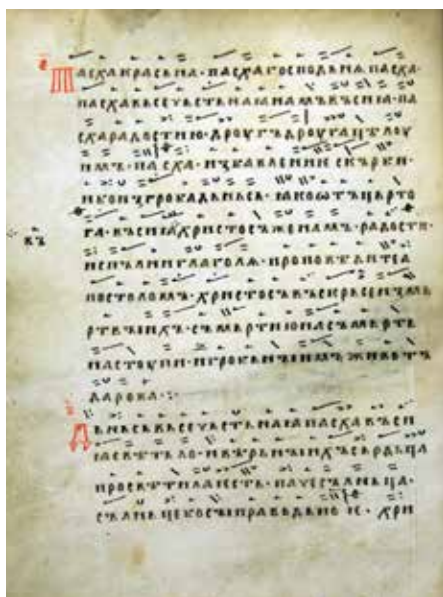 ПАСХАКРАСЬНА·ПАСХАГОСПОДЬНѦ·ПАСХА·
ПАСХАВЬСЕЧЬСТЬНАІАНАМЪВЪСИІА·ПА
СХАРАДОСТИЮ·ДРОУГЪДРОУГАЦѢЛОУ
ИМЪ·ПАСХА·ИЗБАВЛЕНИЕСКЪРБИ·
ИБОИЗГРОБАДЬНЬСЬ·ІАКООТЪЧЬРТО
ВЪ
ГА·ВЪСИІАХРИСТОСЪЖЕНАМЪ·РАДОСТИ·
ИСПЪЛНИГЛАГОЛѦ·ПРОПОВѢДИТЕА
ПОСТОЛОМЪ·ХРИСТОСЪВЪСКРЬСЕИЗМЬ
РТВЪИХЪ·СЪМЬРТИЮНАСЪМЬРТЬ
НАСТОУПИ·ИГРОБЬНЪИМЪЖИВОТЪ
ДАРОВА·:·
ДЬНЬСЬВЬСЕЧЬСТЬНАІАПАСХАВЪСИ
ІАСВѢТЪЛО·ИВѢРЬНЪИХЪСЬРДЬЦА
ПРОСВѢТИЛАЕСТЬ·ПАЧЕСЪЛНЬЦА·
СЪЛНЬЦЕБОСЪИПРАВЬДЬНОЕ·ХРИ